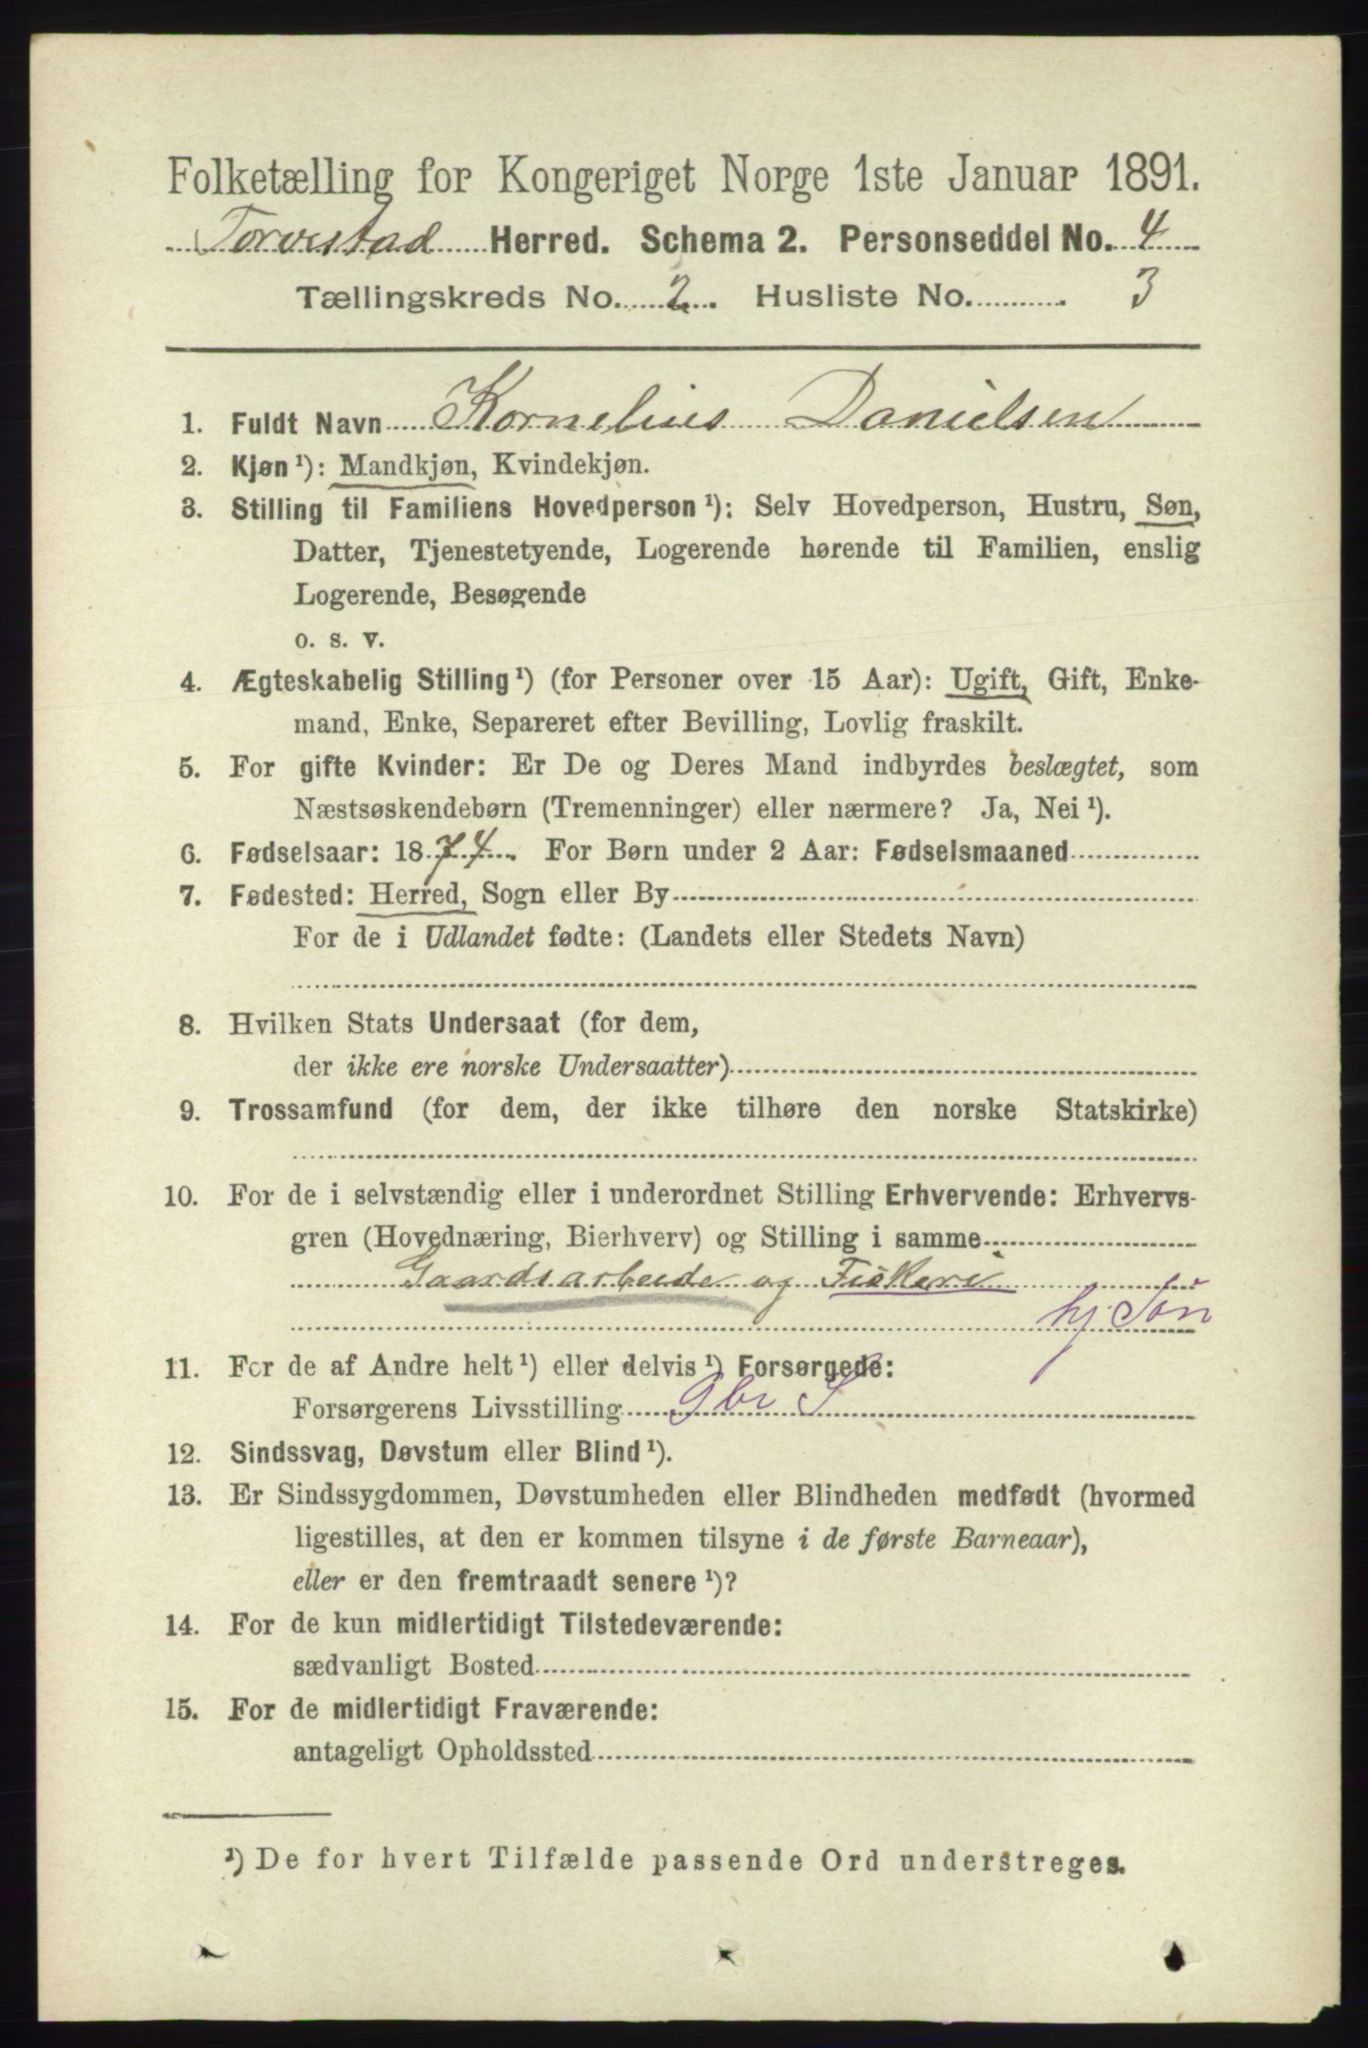 Folketælling for Kongeriget Norge 1ste Januar 1891.
Torvestad Herred. Schema 2. Personseddel No. 4
Tællingskreds No. 2. Husliste No. 3
1. Fuldt Navn Kornelius Danielsen
2. Kjøn ¹): Mandkjøn, Kvindekjøn.
3. Stilling til Familiens Hovedperson ¹): Selv Hovedperson, Hustru, Søn,
Datter, Tjenestetyende, Logerende hørende til Familien, enslig
Logerende, Besøgende
o. s. v.
4. Ægteskabelig Stilling ¹) (for Personer over 15 Aar): Ugift, Gift, Enke-
mand, Enke, Separeret efter Bevilling, Lovlig fraskilt.
5. For gifte Kvinder: Er De og Deres Mand indbyrdes beslægtet, som
Næstsøskendebørn (Tremenninger) eller nærmere? Ja, Nei ¹).
6. Fødselsaar: 1874. For Børn under 2 Aar: Fødselsmaaned
7. Fødested: Herred, Sogn eller By
For de i Udlandet fødte: (Landets eller Stedets Navn)
8. Hvilken Stats Undersaat (for dem,
der ikke ere norske Undersaatter)
9. Trossamfund (for dem, der ikke tilhøre den norske Statskirke)
10. For de i selvstændig eller i underordnet Stilling Erhvervende: Erhvervs-
gren (Hovednæring, Bierhverv) og Stilling i samme
Gaardsarbeide og Fiskeri
hj Søn
11. For de af Andre helt ¹) eller delvis ¹) Forsørgede:
Forsørgerens Livsstilling Gbr S
12. Sindssvag, Døvstum eller Blind ¹).
13. Er Sindssygdommen, Døvstumheden eller Blindheden medfødt (hvormed
ligestilles, at den er kommen tilsyne i de første Barneaar),
eller er den fremtraadt senere ¹)?
14. For de kun midlertidigt Tilstedeværende:
sædvanligt Bosted
15. For de midlertidigt Fraværende:
antageligt Opholdssted
¹) De for hvert Tilfælde passende Ord understreges.